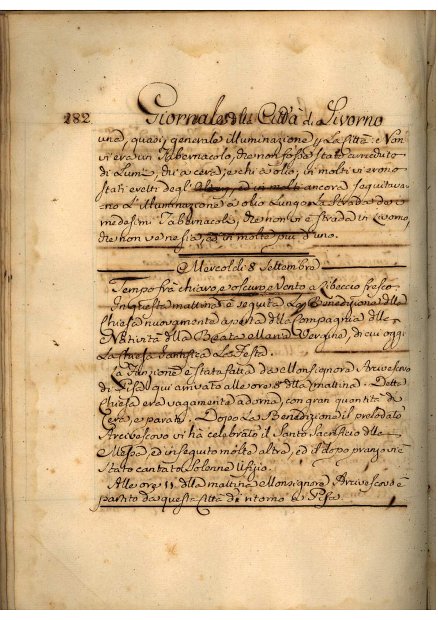 182 Giornale della Città di Livorno
una, quasi generale illuminazione p. la Città: e Non
vi era un Tabernacolo, che non fosse stato arricchito
di Lumi, chi a cera, e chi a olio, in molti vi erono
stati eretti degl' ed in molti ancora seguitava-
no l'Illuminazione a olio lungo la Strada de i
medesimi Tabernacoli, che non vi è strada in Livorno,
che non ve ne sia, ed in molte più d'uno.
Mercoldì 8 Settembre
Tempo frà chiaro, e oscuro, e Vento a Libeccio fresco.
In questa mattina è seguita la Benedizione della
Chiesa nuovamente aperta della Compagnia della
Natività della Beata Maria Vergine, di cui oggi
la Chiesa santifica la Festa.
La funzione è stata fatta da Monsignore Arcivescovo
di Pisa qui arrivato alle ore 8 della mattina. Detta
Chiesa era vagamente adorna, con gran quantità di
Cera, e parati. Dopo la Benedizione il prelodato
Arcivescovo vi hà celebrato il Santo Sacrificio della
Messa, ed in seguito molte altre, ed il dopo pranzo vi è
stato cantato solenne Ufizio.
Alle ore 11 della mattina Monsignore Arcivescovo è
partito da questa Città di ritorno a Pisa.